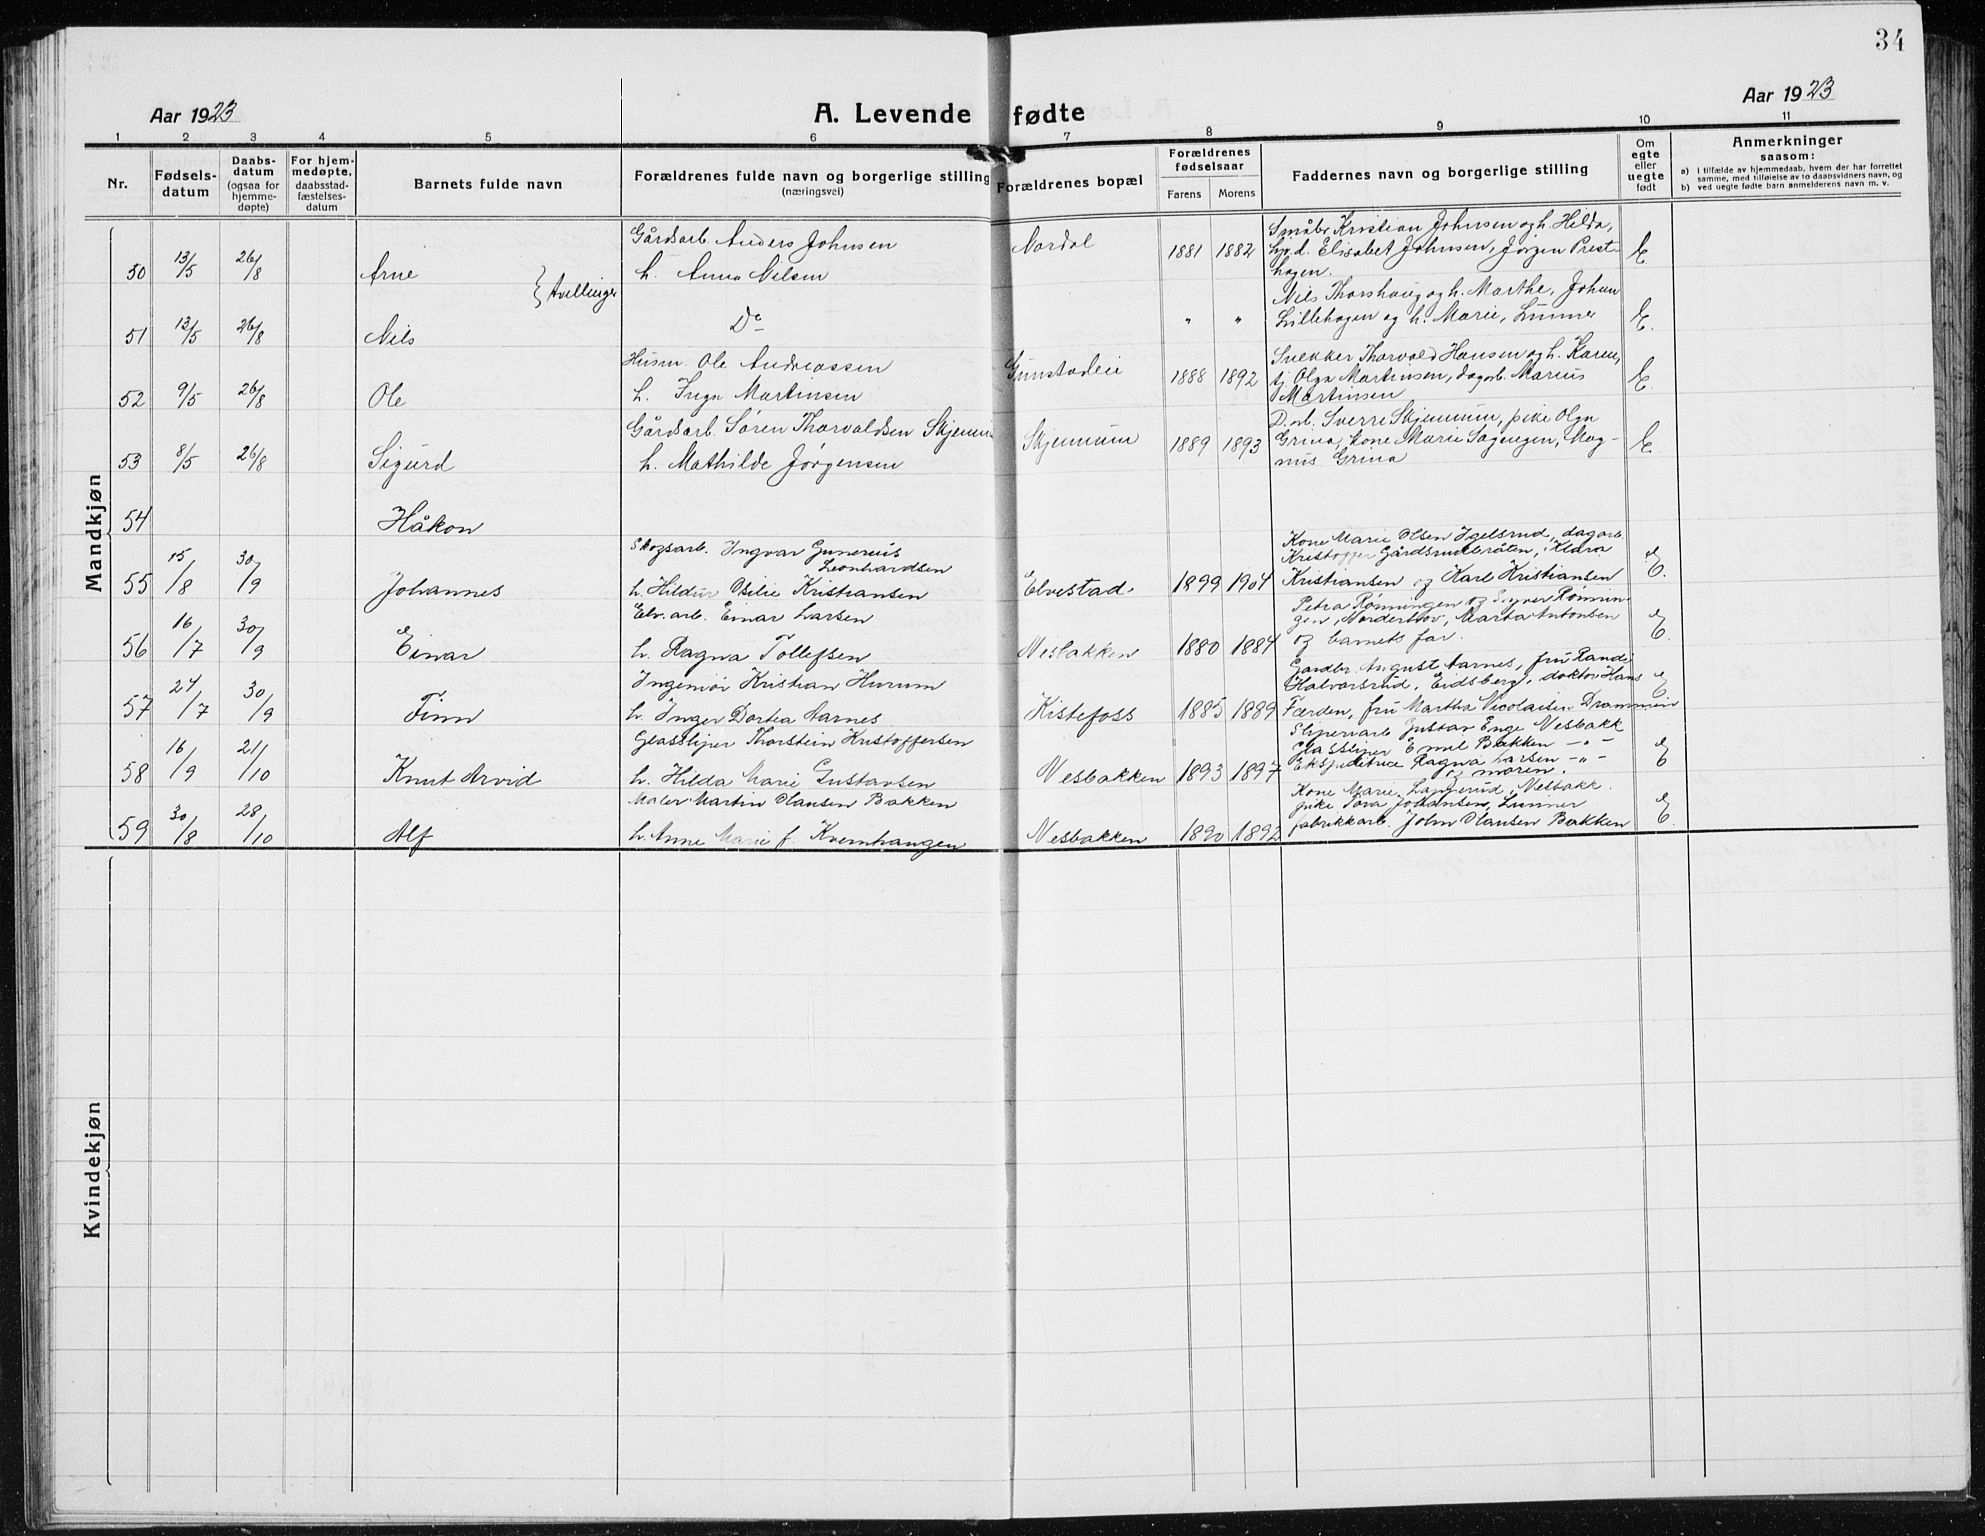 34
Aar 1923
A. Levende fødte
Aar 1923
1 2 3 4 5 6 7 8 9 10 11
Nr.
Fødsels-
datum
Daabs-
datum
(ogsaa for
hjemme-
døpte)
For hjem-
medøpte,
daabsstad-
fæstelses-
datum
Barnets fulde navn
Forældrenes fulde navn og borgerlige stilling
(næringsvei)
Forældrenes bopæl
Forældrenes
fødselsaar
Farens Morens
Faddernes navn og borgerlige stilling
Om
egte
eller
uegte
født
Anmerkninger
saasom:
a) i tilfælde av hjemmedaab, hvem der har forrettet
samme, med tilføielse av to daabsvidners navn, og
b) ved uegte fødte barn anmelderens navn m. v.
Mandkjøn
50 13/5 26/8 Arne } Tvillinger
Gårdsarb. Anders Johnsen
h. Anna Nilsen
Nordal 1881 1882
Småbr. Kristian Johnsen og h. Hilda,
Elisabet Johnsen, Jørgen Prest-
hagen.
E
51 13/5 26/8 Nils
Do
" "
Nils Thorshaug og h. Marthe, Johan
Lillehagen og h. Marie, Lunner
E.
52 9/5 26/8 Ole
Husm. Ole Andreassen
h. Inga Martinsen
Gunstadeie 1888 1892
Snekker Thorvald Hansen og h. Karen,
tj. Olga Martinsen, dagarb. Marius
Martinsen
E.
53 8/5 26/8 Sigurd
Gårdsarb. Søren Thorvaldsen Skjennum
h. Mathilde Jørgensen
Skjennum 1889 1893
D.arb. Sverre Skjennum, pike Olga
Grina, kone Marie Sagengen, Mag-
nus Grina
E.
54 Håkon
55 15/8 30/9 Johannes
Skogsarb. Ingvar Gunerius
Leonhardsen
h. Hildur Otilie Kristiansen
Elvestad. 1899 1904
Kone Marie Olsen Igelsrud, dagarb.
Kristoffer Gårdsrudbråten, Klara
Kristiansen og Karl Kristiansen
E.
56 16/7 30/9 Einar
Elv. arb. Einar Larsen
h. Ragna Tollefsen
Nesbakken 1880 1884
Petra Rønningen og Sigver Rønnin-
gen, Norderhov, Marta Antonsen
og barnets far.
E.
57 24/7 30/9 Finn
Ingeniør Kristian Hurum
h. Inger Dortea Aarnes
Kistefoss 1885 1889
Gardbr. August Aarnes, fru Randi
Halvorsrud, Eidsberg, doktor Hans
Færden, fru Martha Nicolaisen Drammen
E
58 16/9 21/10 Knut Arvid
Glassliper Thorstein Kristoffersen
h. Hilda Marie Gustavsen
Nesbakken 1893 1897
Sliperiarb. Gustav Enge Nesbakk
Glassliper Emil Bakken -"-
Ekspeditrice Ragna Larsen -"-
og moren.
E
59 30/8 28/10 Alf
Maler Martin Hansen Bakken
h. Anne Marie f. Kvernhaugen
Nesbakken 1890 1892
Kone Marie Langerud, Nesbakk.
pike Tora Johansen, Lunner
fabrikkarb. John Hansen Bakken
E.
Kvindekjøn